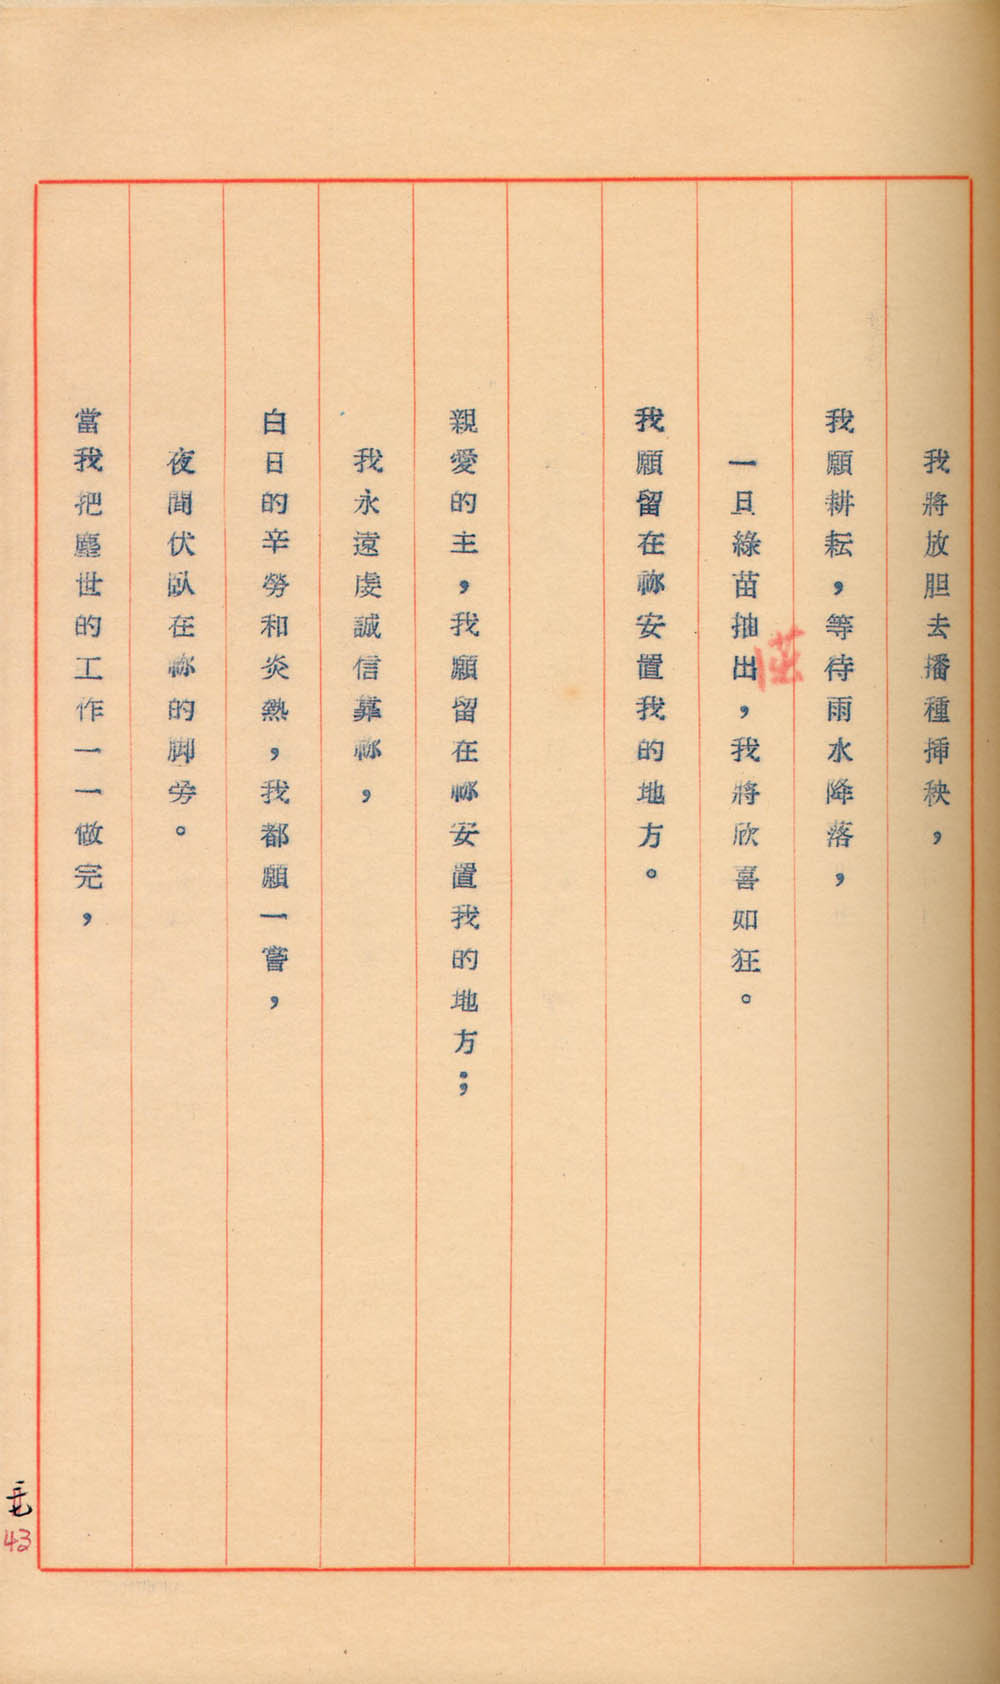 我將放胆去播種揷秧，
我願耕耘，等待雨水降落，
一旦綠苗抽出，我將欣喜如狂。
我願留在祢安置我的地方。
親愛的主，我願留在祢安置我的地方；
我永遠虔誠信靠祢，
白日的辛勞和炎熱，我都願一嘗，
夜間伏臥在祢的脚旁。
當我把塵世的工作一一做完，
43